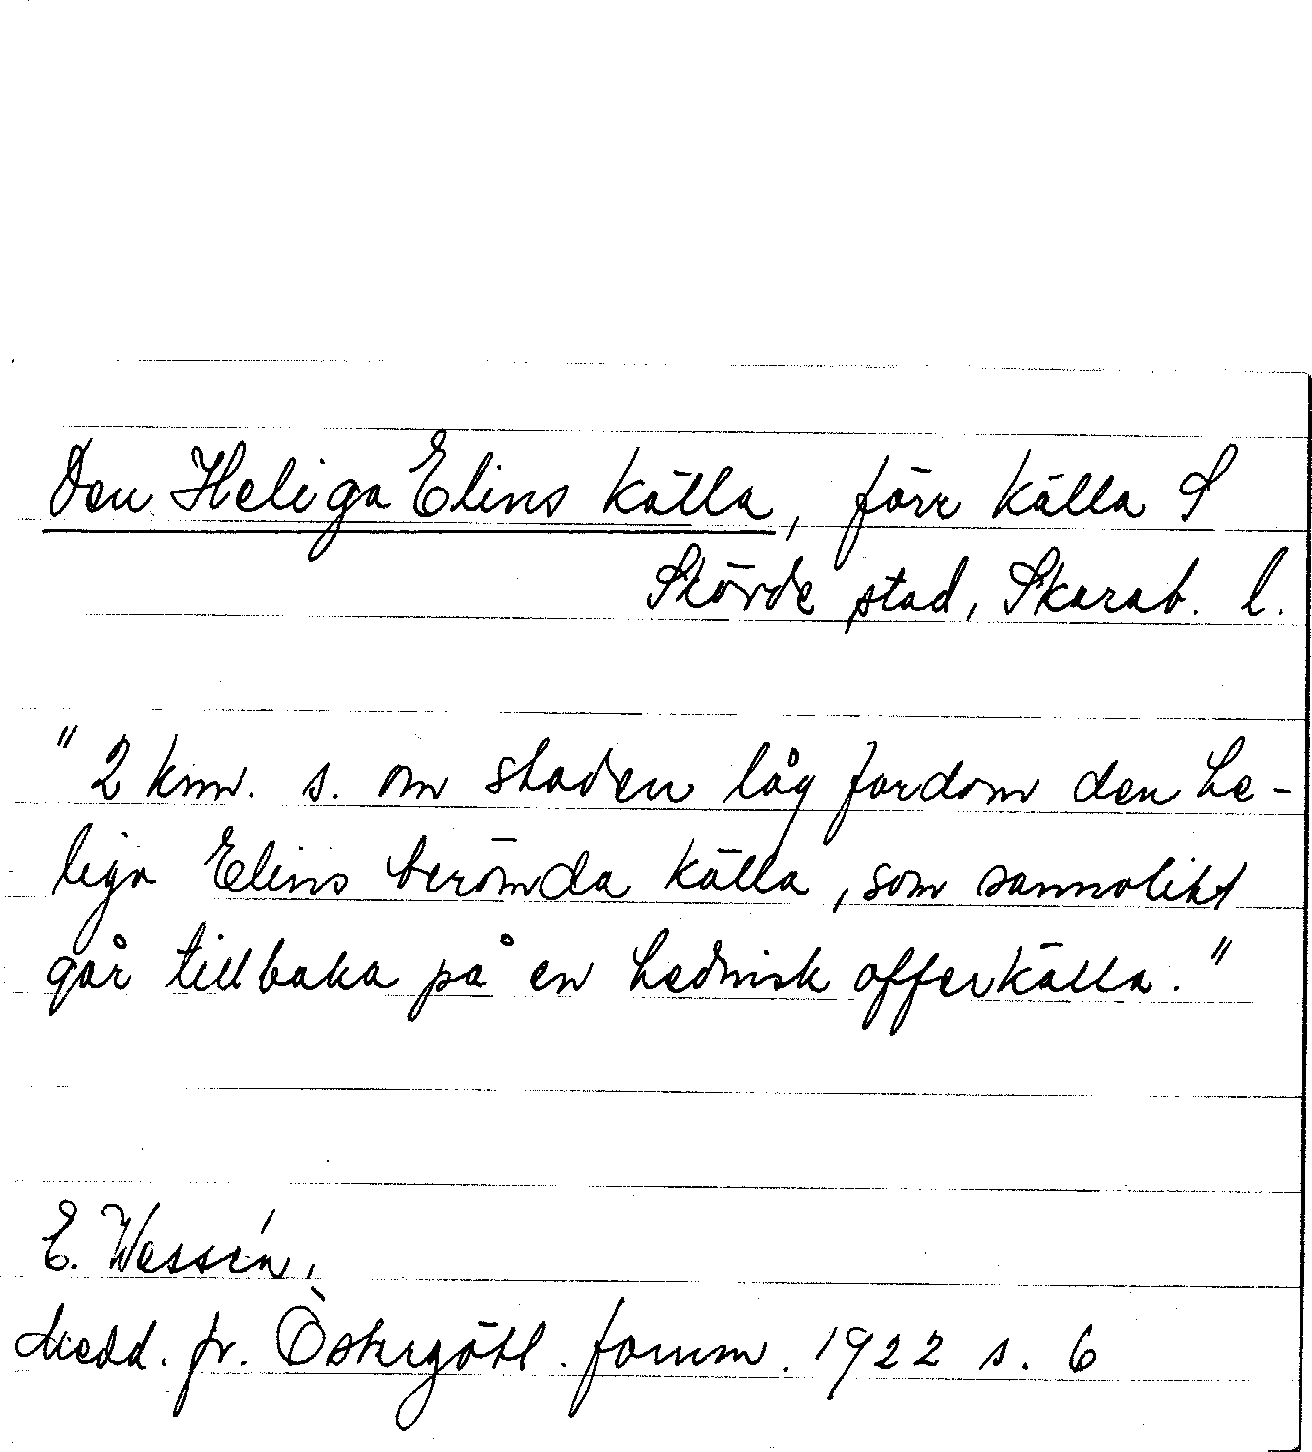 Den Heliga Elins källa, förr källa S
Skövde stad, Skarab. l.
"2 km. s. om staden låg fordom den he-
liga Elins berömda källa, som sannolikt
går tillbaka på en hednisk offerkälla."
E. Wessén,
Medd. fr. Östergötl. fornm. 1922 s. 6